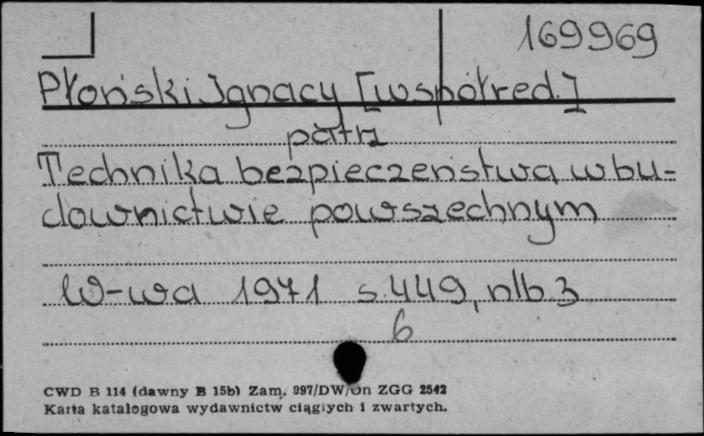 169969
Płoński Ignacy [współred.]
patrz
Technika bezpieczeństwa w bu-
downictwie powszechnym
W-wa 1971 s. 449, nlb. 3
6
CWD B 114 (dawny B 15b) Zam. 997/DW/On ZGG 2542
Karta katalogowa wydawnictw ciągłych i zwartych.